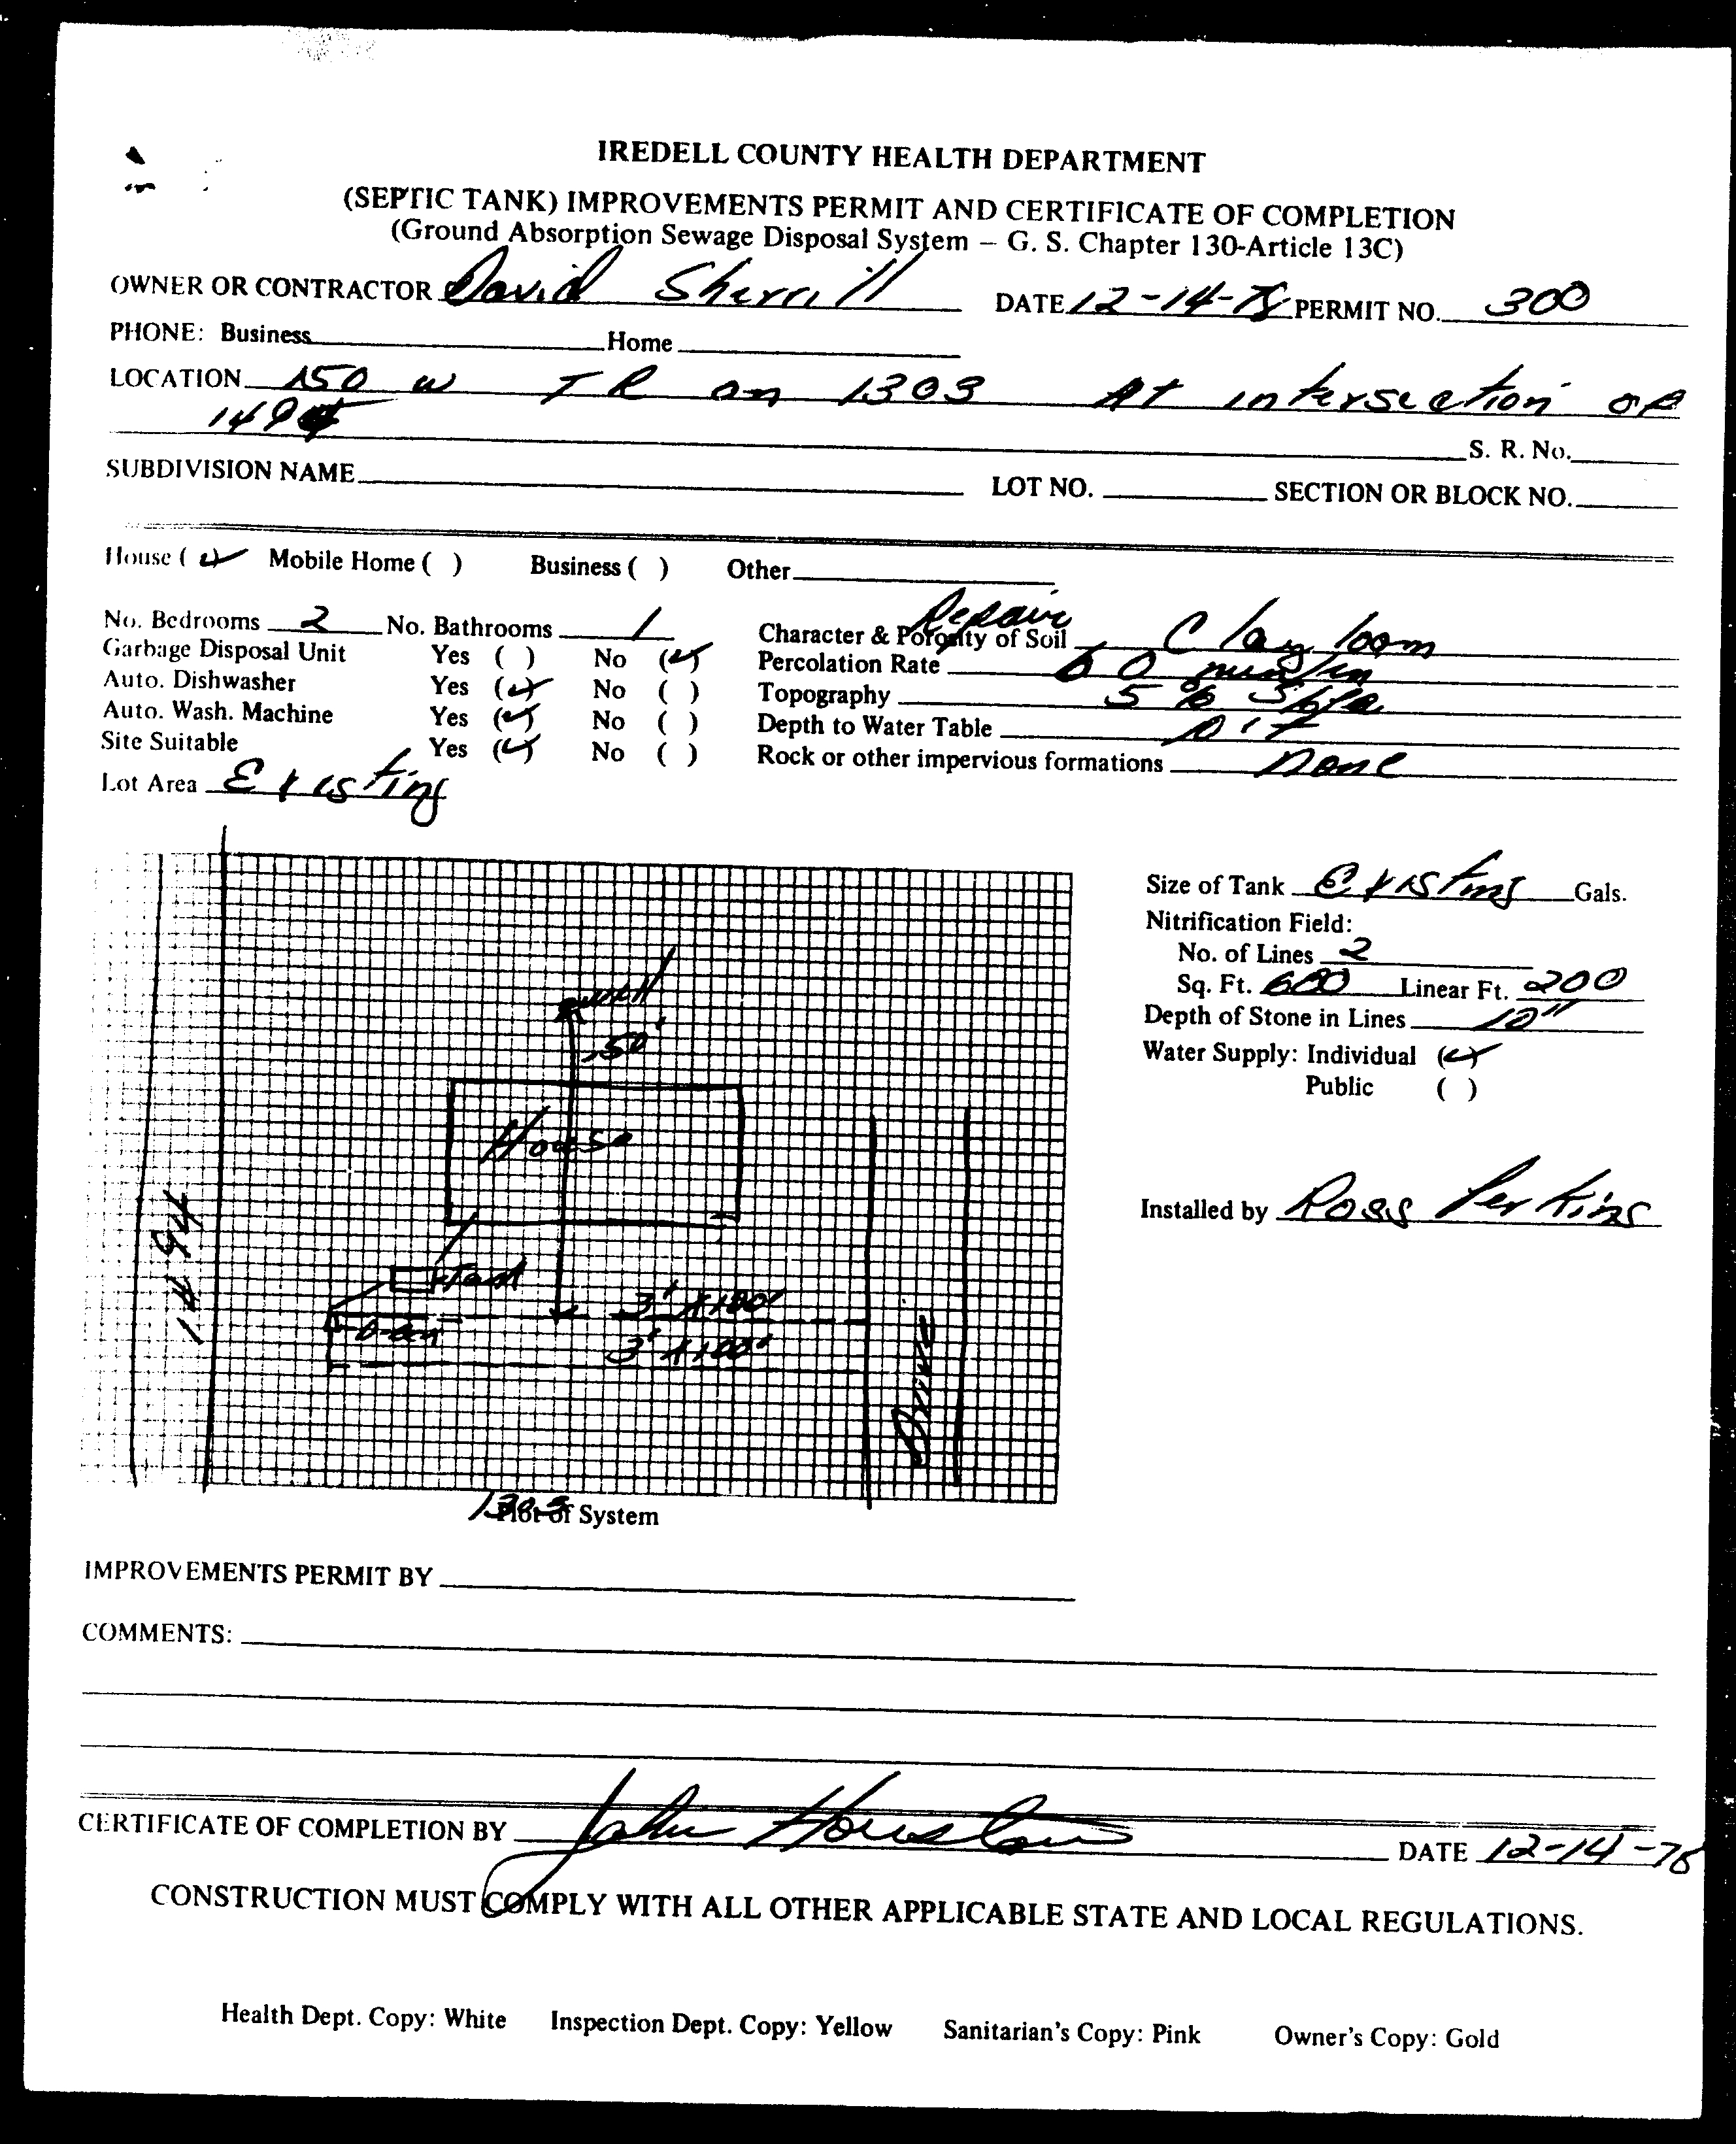 IREDELL COUNTY HEALTH DEPARTMENT
(SEPTIC TANK) IMPROVEMENTS PERMIT AND CERTIFICATE OF COMPLETION
(Ground Absorption Sewage Disposal System – G. S. Chapter 130-Article 13C)
OWNER OR CONTRACTOR David Sherrill DATE 12-14-78 PERMIT NO. 300
PHONE: Business Home
LOCATION 150 W T R on 1303 At intersection of
1494
S. R. No.
SUBDIVISION NAME LOT NO. SECTION OR BLOCK NO.
House (✓) Mobile Home ( ) Business ( ) Other
Repair
No. Bedrooms 2 No. Bathrooms 1 Character & Porosity of Soil Clay loom
Garbage Disposal Unit Yes ( ) No (✓) Percolation Rate 60 min/in
Auto. Dishwasher Yes (✓) No ( ) Topography 5 %
Auto. Wash. Machine Yes (✓) No ( ) Depth to Water Table
Site Suitable Yes (✓) No ( ) Rock or other impervious formations none
Lot Area Existing
Size of Tank Existing Gals.
Nitrification Field:
No. of Lines 2
Sq. Ft. 600 Linear Ft. 200
Depth of Stone in Lines 12"
Water Supply: Individual (✓)
Public ( )
Installed by Ross Perkins
well
50'
House
1494
Tank
3' x 100'
3' x 100'
Drive
1303
Plot of System
IMPROVEMENTS PERMIT BY
COMMENTS:
CERTIFICATE OF COMPLETION BY John Houston DATE 12-14-78
CONSTRUCTION MUST COMPLY WITH ALL OTHER APPLICABLE STATE AND LOCAL REGULATIONS.
Health Dept. Copy: White Inspection Dept. Copy: Yellow Sanitarian's Copy: Pink Owner's Copy: Gold